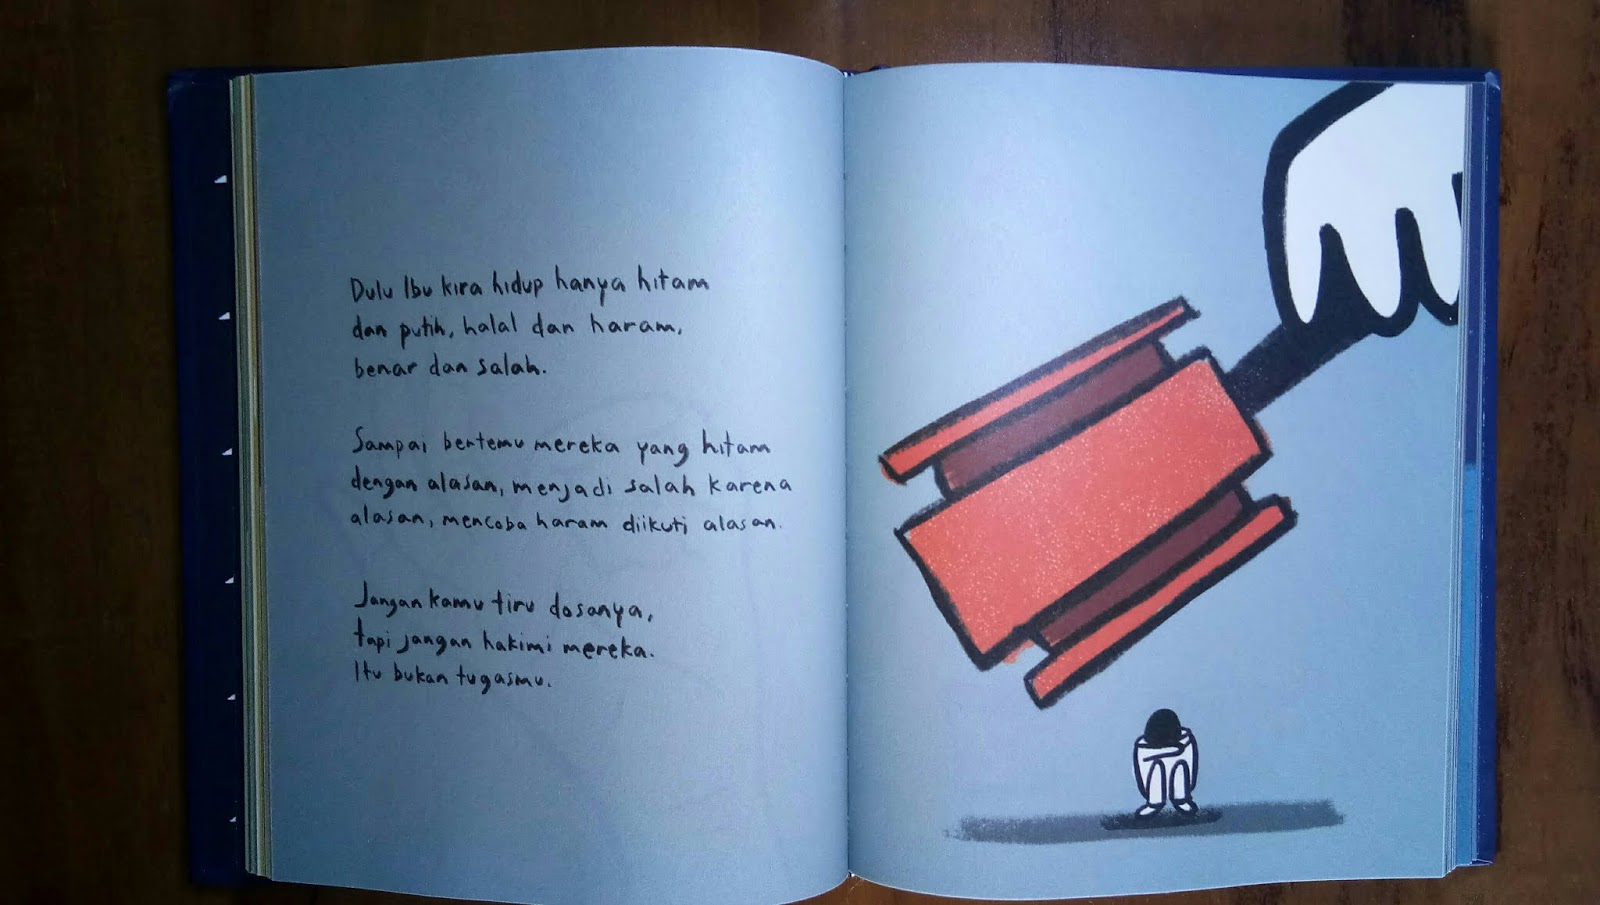 Dulu Ibu kira hidup hanya hitam
dan putih, halal dan haram,
benar dan salah.
Sampai bertemu mereka yang hitam
dengan alasan, menjadi salah karena
alasan, mencoba haram diikuti alasan.
Jangan kamu tiru dosanya,
tapi jangan hakimi mereka.
Itu bukan tugasmu.